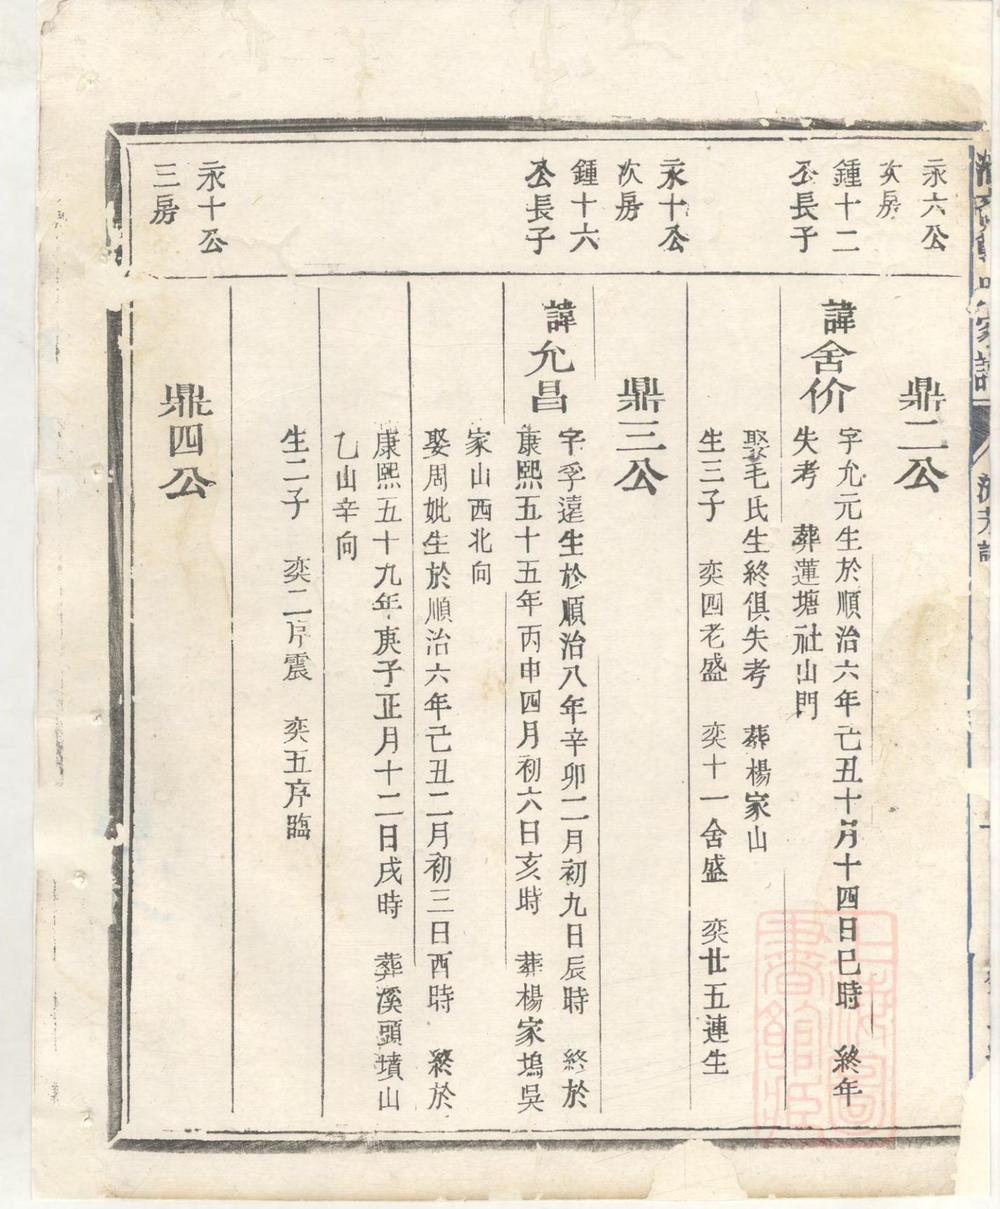 永六公
次房
鍾十二
公長子
鼎二公
諱舍价
字允元生於順治六年己丑十月十四日巳時 終年
失考 葬蓮塘社山門
娶毛氏生終俱失考 葬楊家山
生三子 奕四老盛 奕十一舍盛 奕廿五連生
永十公
次房
鍾十六
公長子
鼎三公
諱允昌
字孚遠生於順治八年辛卯二月初九日辰時 終於
康熙五十五年丙申四月初六日亥時 葬楊家塢吳
家山西北向
娶周妣生於順治六年己丑二月初三日酉時 終於
康熙五十九年庚子正月十二日戌時 葬溪頭墳山
乙山辛向
生二子 奕二序震 奕五序臨
永十公
三房
鼎四公